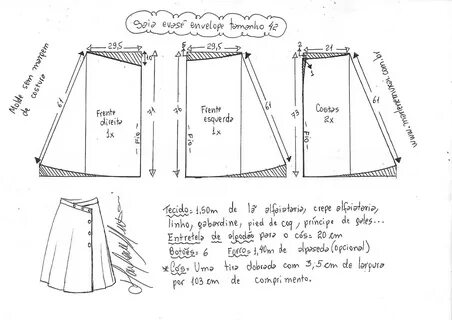 Saia evasê envelope tamanho 42
Molde sem margem
de costura
29,5
10
61
71
Frente
direita
1x
Fio
5
29,5
76
61
Frente
esquerda
1x
Fio
2
21
3
73
61
Costas
2x
Fio
Tecido= 1,50m de lã alfaiataria, crepe alfaiataria,
linho, gabardine, pied de coq, príncipe de gales...
Entretela de algodão para o cós= 20 cm
Botões= 6 Forro= 1,40m de alpaseda (opcional)
* Cós= Uma tira dobrada com 3,5 cm de largura
por 103 cm de comprimento.